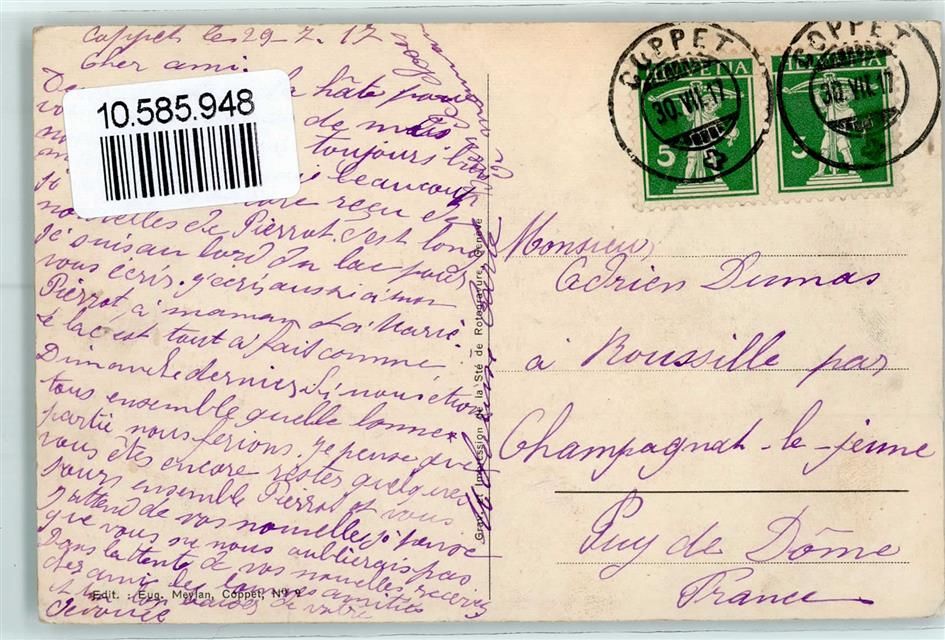 Coppet le 29-7.17
Cher ami
la hâte pour
de mes
toujours bien
beaucoup
reçu de
nouvelles de Pierrot. c'est long
Je suis au bord du lac pour
vous écrire. j'écris aussi à mon
Pierrot, à maman et à Marie.
le lac est tout à fait comme
Dimanche dernier. Si nous étions
tous ensemble quelle bonne
partie nous ferions. je pense que
vous êtes encore restés quelques
jours ensemble Pierrot et vous
J'attend de vos nouvelle, j'pense
que vous ne nous oublierais pas
Dans l'attente de vos nouvelles recevez
cher ami les amitiés
de votre
dévouée
10.585.948
Edit. : Eug. Meylan, Coppet, No 2
Grav. et Impression de la Sté de Rotogravure, Genève
COPPET
30.VII.17
HELVETIA
5
COPPET
30.VII.17
HELVETIA
5
Monsieur
Adrien Dumas
à Roussille par
Champagnat-le-jeune
Puy de Dôme
France